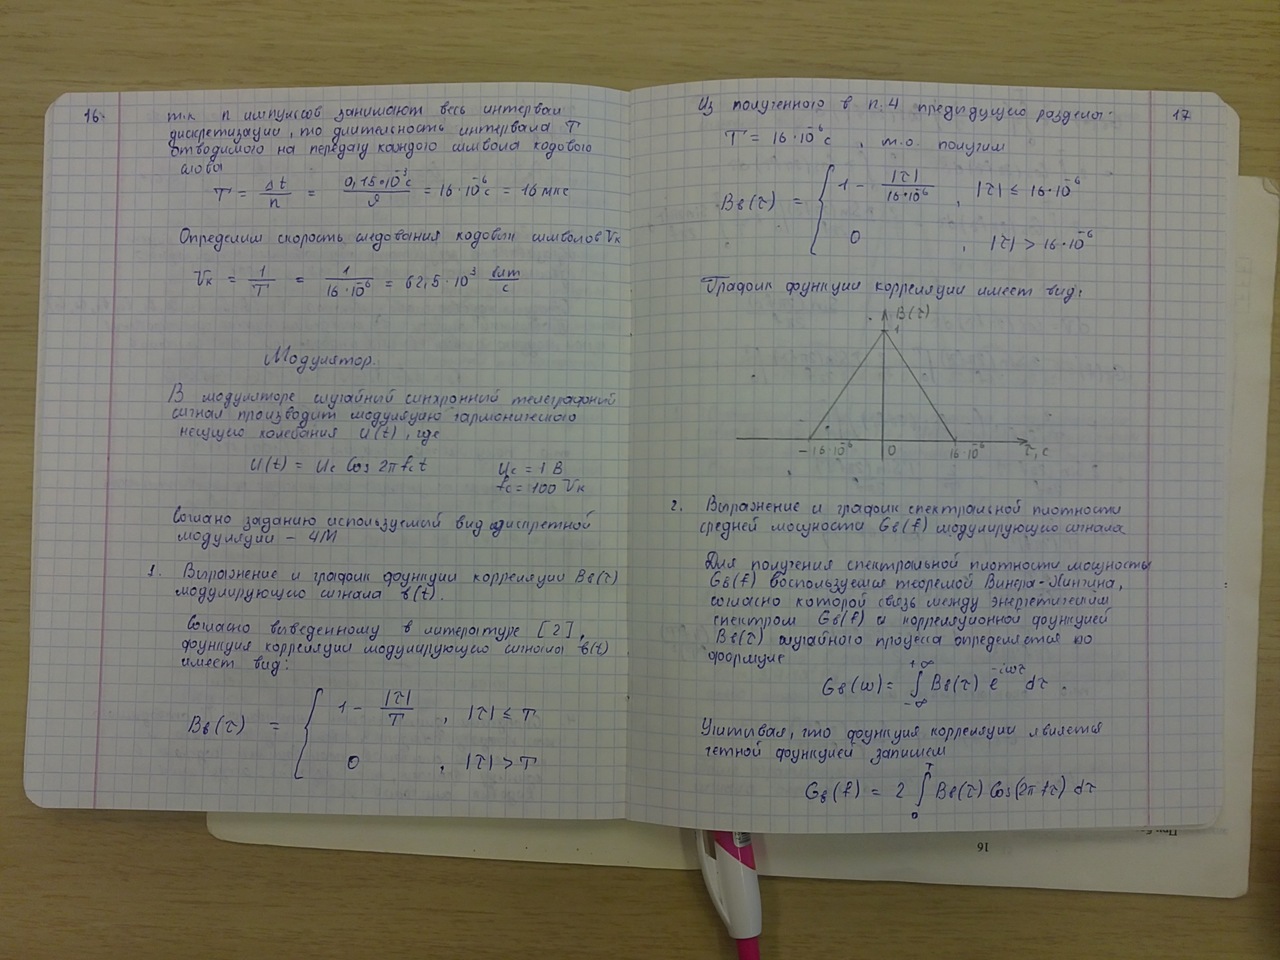 16.
т.к. n импульсов занимают весь интервал
дискретизации, то длительность интервала T
отводимого на передачу каждого символа кодового
слова
T = Δt/n = 0,15·10⁻³c/9 = 16·10⁻⁶c = 16 мкс
Определим скорость следования кодовых символов Vк
Vк = 1/T = 1/16·10⁻⁶ = 62,5·10³ бит/с
Модулятор.
В модуляторе случайный синхронный телеграфный
сигнал производит модуляцию гармонического
несущего колебания U(t), где
U(t) = Uc Cos 2πfct Uc = 1 В
fc = 100 Vк
Согласно заданию используемый вид дискретной
модуляции – ЧМ
1. Выражение и график функции корреляции Bв(τ)
модулирующего сигнала в(t).
Согласно выведенному в литературе [2],
функция корреляции модулирующего сигнала в(t)
имеет вид:
Bв(τ) = { 1 - |τ|/T , |τ| ≤ T
0 , |τ| > T
17
Из полученного в п.4 предыдущего раздела:
T = 16·10⁻⁶c , т.о. получим
Bв(τ) = { 1 - |τ|/16·10⁻⁶ , |τ| ≤ 16·10⁻⁶
0 , |τ| > 16·10⁻⁶
График функции корреляции имеет вид:
B(τ)
1
-16·10⁻⁶ 0 16·10⁻⁶ τ, c
2. Выражение и график спектральной плотности
средней мощности Gв(f) модулирующего сигнала
Для получения спектральной плотности мощности
Gв(f) воспользуемся теоремой Винера-Хинчина,
согласно которой связь между энергетическим
спектром Gв(f) и корреляционной функцией
Bв(τ) случайного процесса определяется по
формуле
Gв(ω) = ∫₋∞⁺∞ Bв(τ) e^(-iωτ) dτ .
Учитывая, что функция корреляции является
четной функцией запишем
Gв(f) = 2 ∫₀ᵀ Bв(τ) Cos(2πfτ) dτ
16